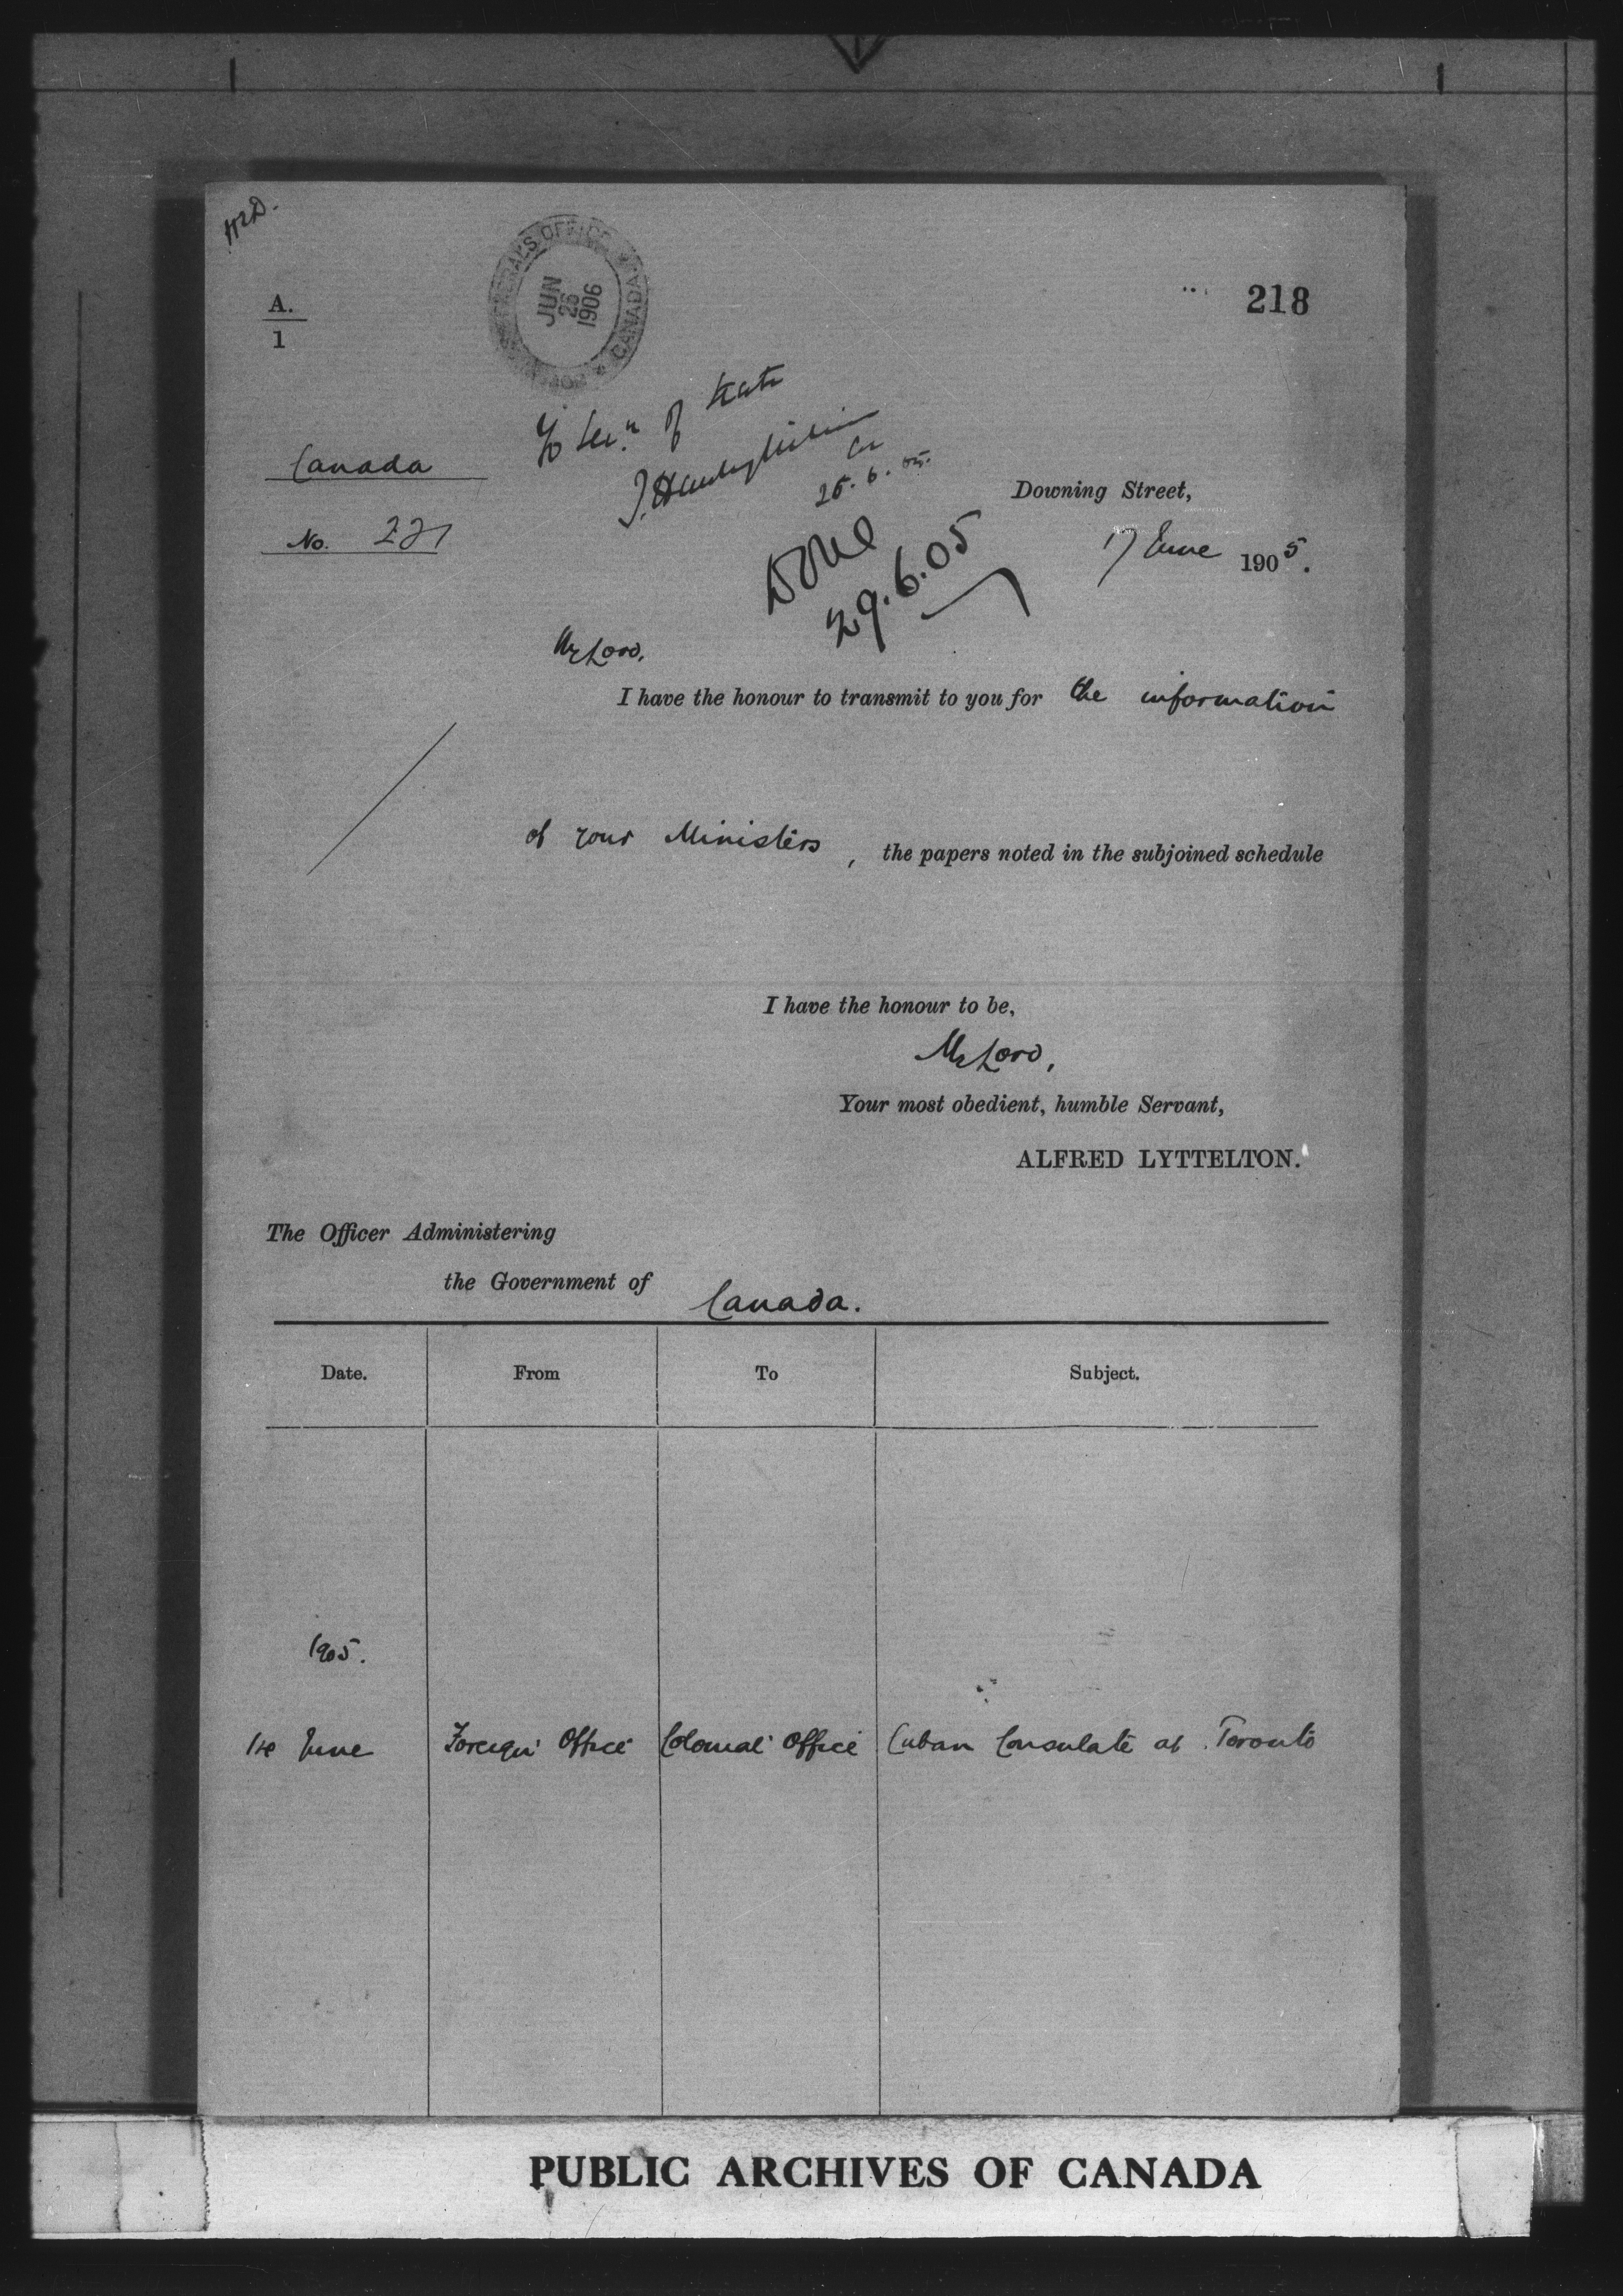 218
A.
1
GENERAL'S OFFICE CANADA
JUN
26
1906
To Secy of State
25.6.05.
Canada
Downing Street,
No. 221
17 June 1905.
Done
29.6.05
My Lord,
I have the honour to transmit to you for the information
of your Ministers, the papers noted in the subjoined schedule
I have the honour to be,
My Lord,
Your most obedient, humble Servant,
ALFRED LYTTELTON.
The Officer Administering
the Government of Canada.
Date. From To Subject.
1905.
14 June Foreign Office Colonial Office Cuban Consulate at Toronto
PUBLIC ARCHIVES OF CANADA